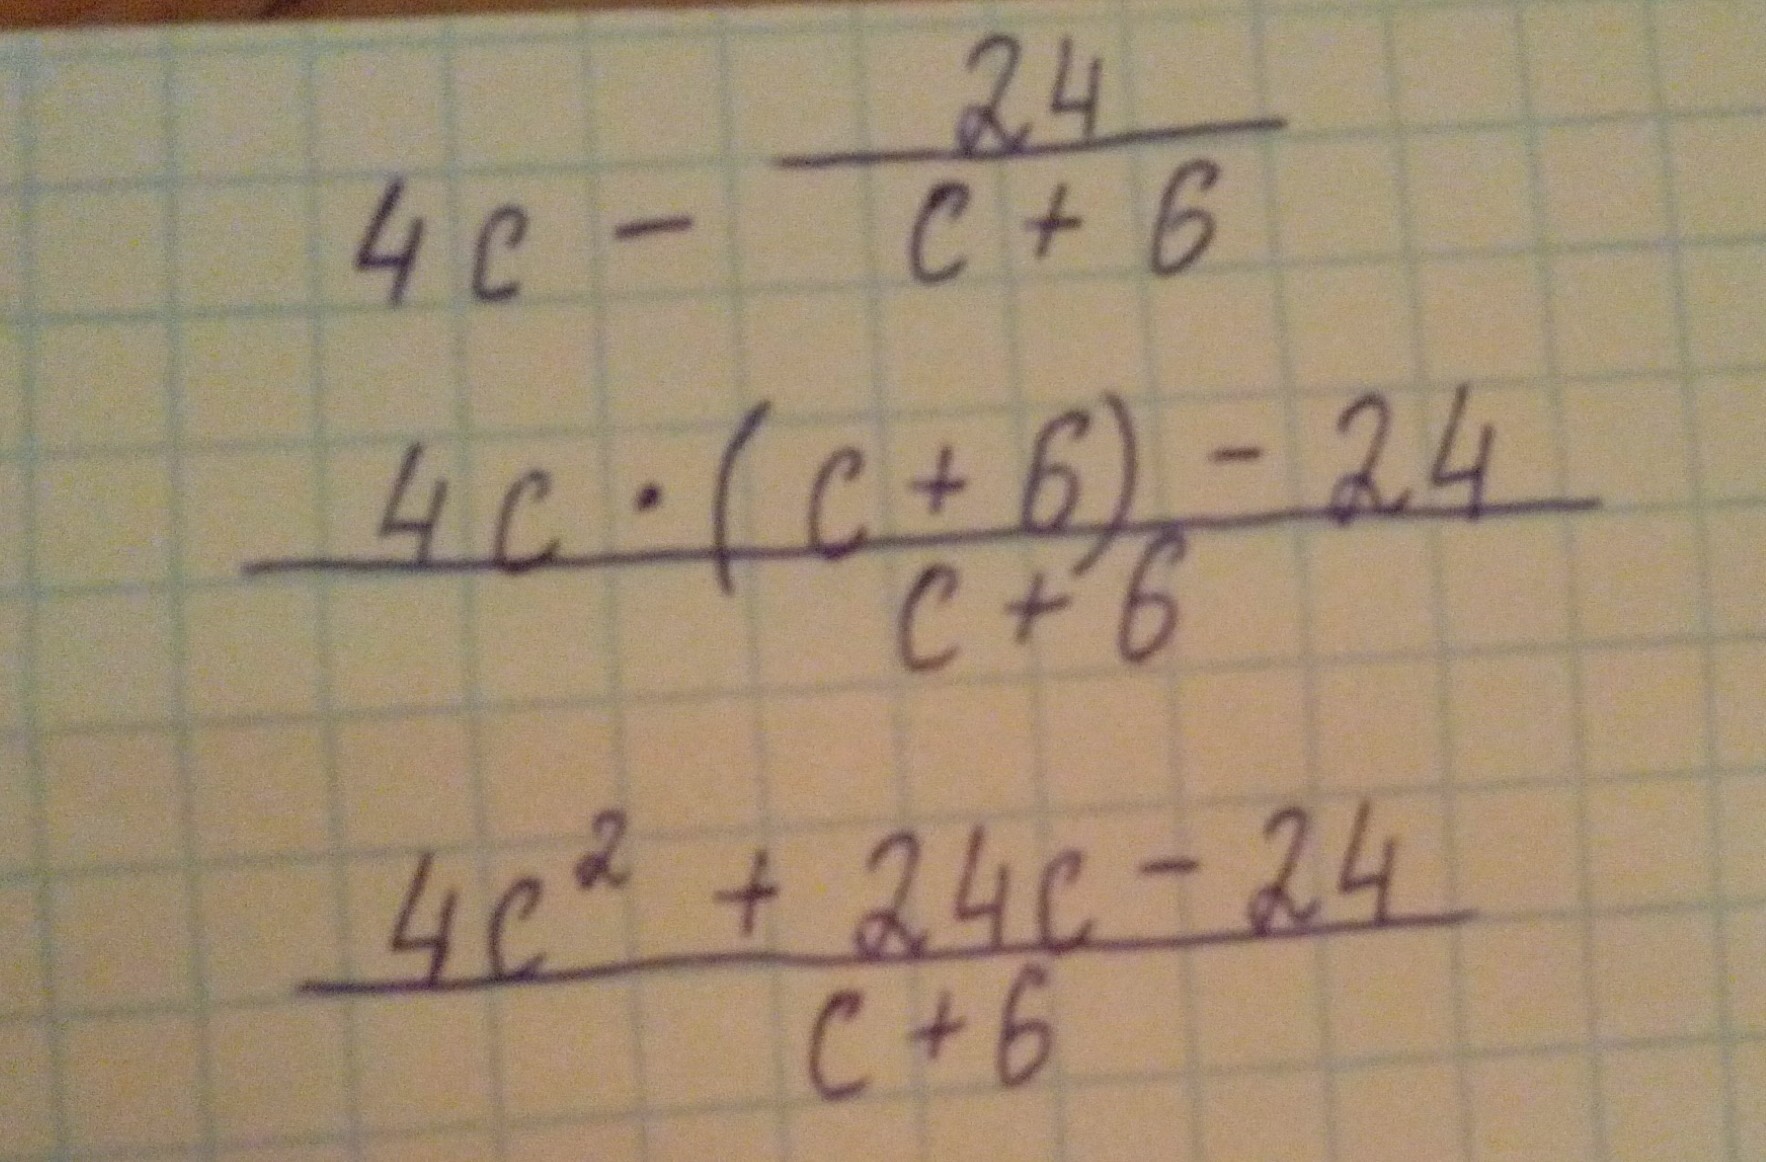 4c - 24/(c + 6)
(4c · (c + 6) - 24)/(c + 6)
(4c² + 24c - 24)/(c + 6)